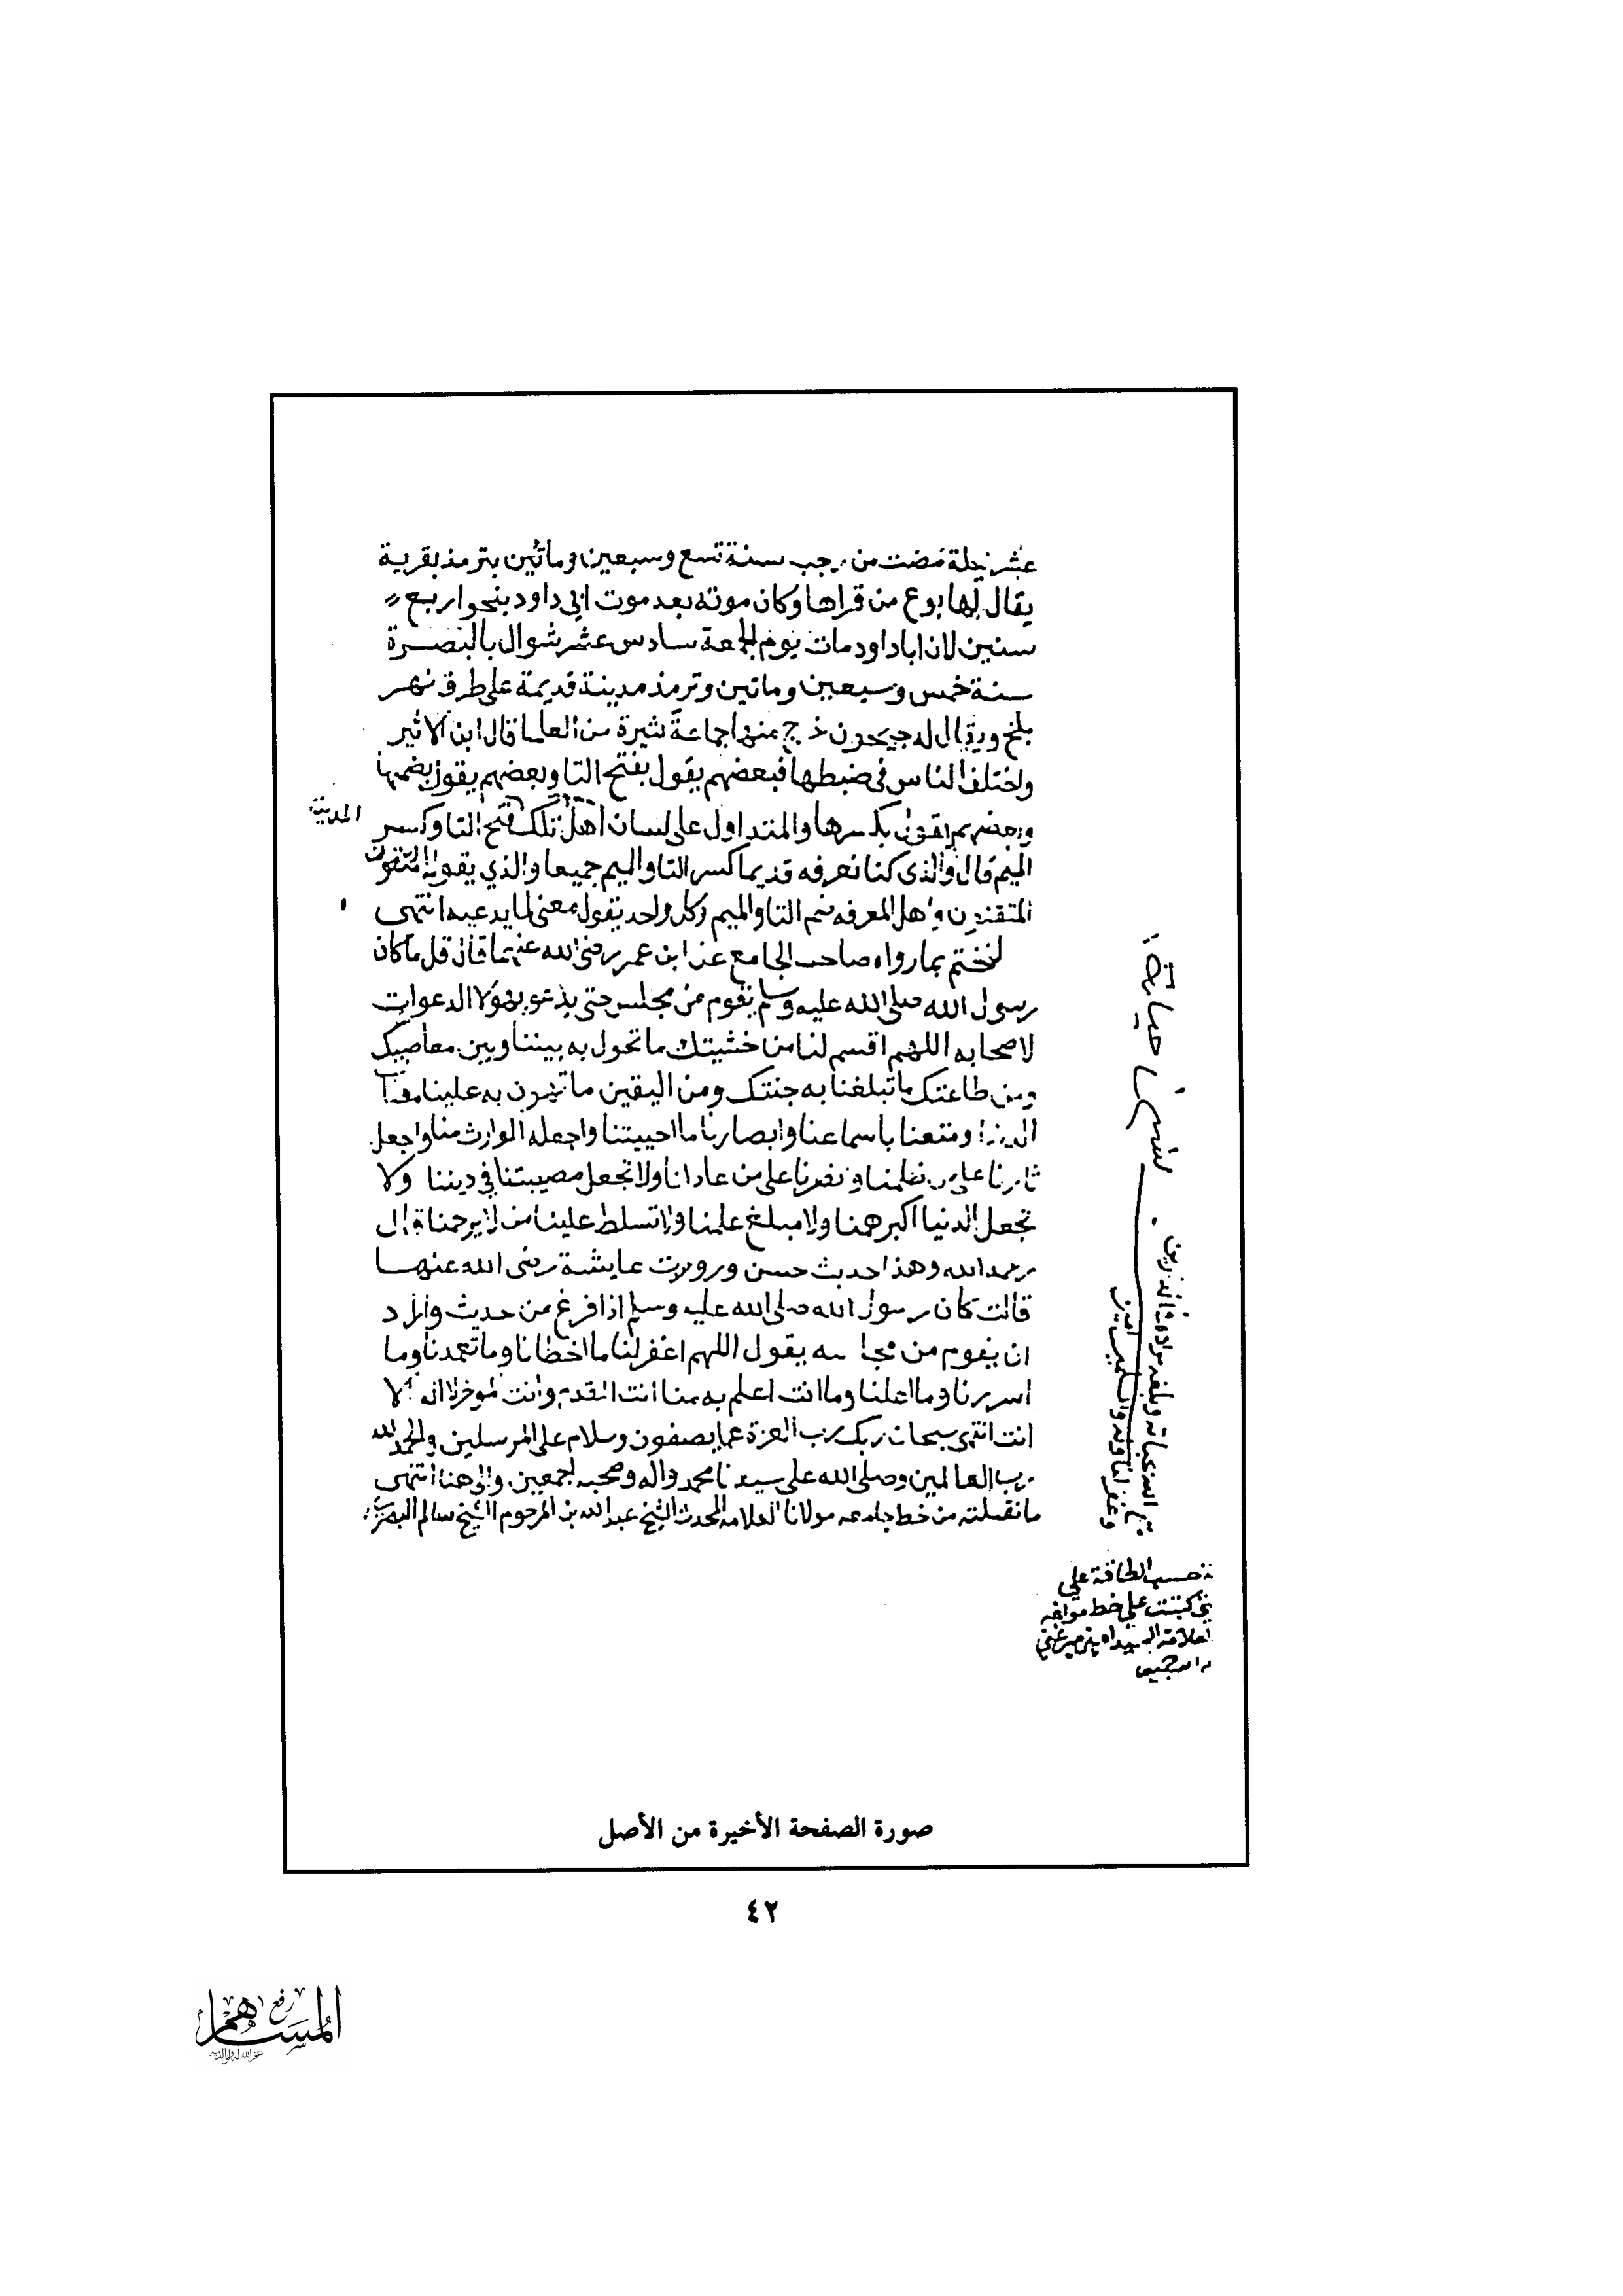 عشر ليلة مضت من رجب سنة تسع وسبعين وماتين بترمذ بقرية
يقال لها بوغ من قراها وكان موته بعد موت ابي داود بنحو اربع
سنين لان ابا داود مات يوم الجمعة سادس عشر شوال بالبصرة
سنة خمس وسبعين وماتين وترمذ مدينة قديمة على طرف نهر
بلخ ويقال له جيحون خرج منها جماعة كثيرة من العلما قال ابن الاثير
واختلف الناس في ضبطها فبعضهم يقول بفتح التا وبعضهم يقول بضمها
وبعضهم يقول بكسرها والمتداول على لسان اهل تلك المدينة فتح التا وكسر
الميم قال والذي كنا نعرفه قديما كسر التا والميم جميعا والذي يقوله
المتقنون واهل المعرفه ضم التا والميم وكل واحد يقول معنى لما يدعيه انتهى
لنختم بما رواه صاحب الجامع عن ابن عمر رضي الله عنهما قال قل ما كان
رسول الله صلى الله عليه وسلم يقوم من مجلس حتى يدعو بهولا الدعوات
لاصحابه اللهم اقسم لنا من خشيتك ما تحول به بيننا وبين معاصيك
ومن طاعتك ما تبلغنا به جنتك ومن اليقين ما تهون به علينا
الدنيا ومتعنا باسماعنا وابصارنا ما احييتنا واجعله الوارث منا واجعل
ثارنا على من ظلمنا وانصرنا على من عادانا ولا تجعل مصيبتنا في ديننا ولا
تجعل الدنيا اكبر همنا ولا مبلغ علمنا ولا تسلط علينا من لا يرحمنا قال
رحمه الله وهذا حديث حسن ورويت عايشة رضي الله عنها
قالت كان رسول الله صلى الله عليه وسلم اذا فرغ من حديث واراد
ان يقوم من مجلسه يقول اللهم اغفر لنا ما اخطانا وما تعمدنا وما
اسررنا وما اعلنا وما انت اعلم به منا انت المقدم وانت الموخر لا اله الا
انت انتهى سبحان ربك رب العزة عما يصفون وسلام على المرسلين والحمد لله
رب العالمين وصلى الله على سيدنا محمد واله وصحبه اجمعين والى هنا انتهى
ما نقلته من خط جامعه مولانا العلامه المحدث الشيخ عبد الله بن المرحوم الشيخ سالم البصري
متع الله بحياته وبلغه مراده في الدارين
وغفر لنا وله والمسلمين امين
حسب الطاقة على
كتبت على خط مولفه
صورة الصفحة الأخيرة من الأصل
٤٢
رفع
المساهم
غفر الله له ولوالديه